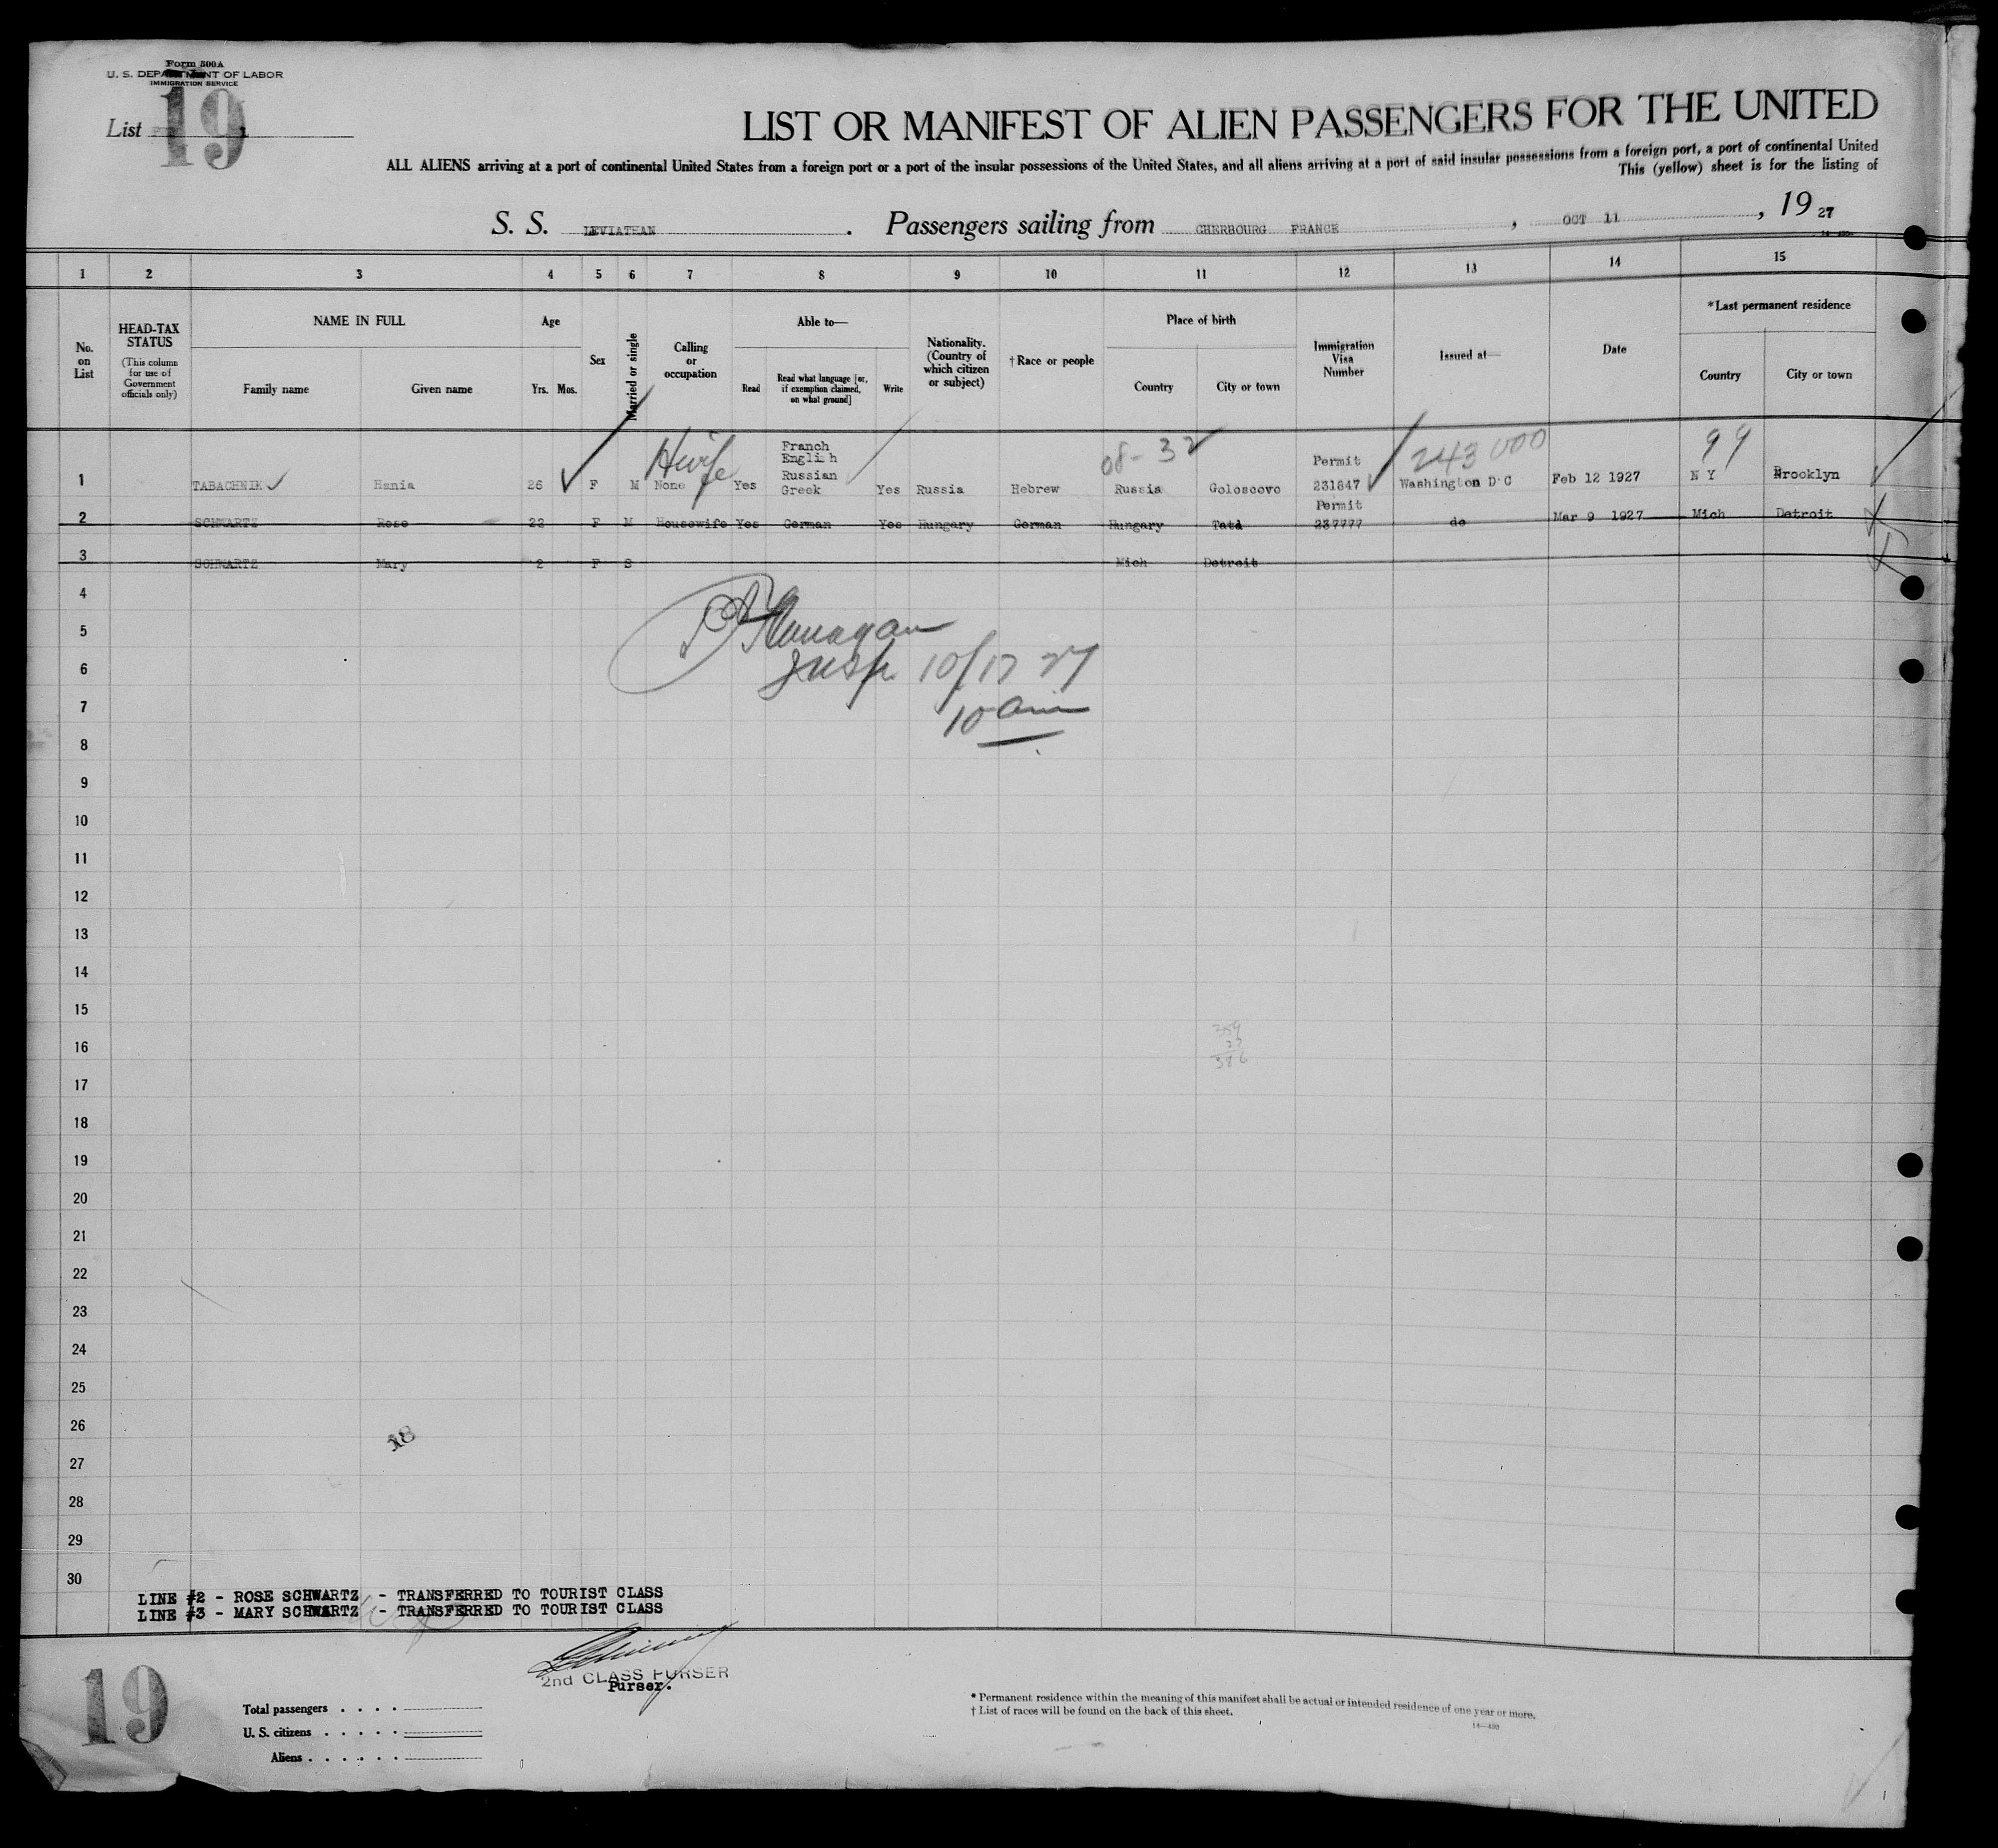 Form 500A
U. S. DEPARTMENT OF LABOR
IMMIGRATION SERVICE
List 19
LIST OR MANIFEST OF ALIEN PASSENGERS FOR THE UNITED
ALL ALIENS arriving at a port of continental United States from a foreign port or a port of the insular possessions of the United States, and all aliens arriving at a port of said insular possessions from a foreign port, a port of continental United
This (yellow) sheet is for the listing of
S. S. LEVIATHAN . Passengers sailing from CHERBOURG FRANCE , OCT 11 , 19 27
1 2 3 4 5 6 7 8 9 10 11 12 13 14 15
No. on List
HEAD-TAX STATUS
(This column for use of Government officials only)
NAME IN FULL
Family name Given name
Age
Yrs. Mos.
Sex
Married or single
Calling or occupation
Able to—
Read
Read what language [or, if exemption claimed, on what ground]
Write
Nationality. (Country of which citizen or subject)
†Race or people
Place of birth
Country City or town
Immigration Visa Number
Issued at—
Date
*Last permanent residence
Country City or town
Hwife 08-32 243 000 99
Franch
English
Russian Permit
1 TABACHNIK Hania 26 F M None Yes Greek Yes Russia Hebrew Russia Goloscovo 231847 Washington D C Feb 12 1927 N Y Brooklyn
Permit
2 SCHWARTZ Rose 22 F M Housewife Yes German Yes Hungary German Hungary Tata 237777 do Mar 9 1927 Mich Detroit
3 SCHWARTZ Mary 2 F S Mich Detroit
4
5 Flanagan
6 Insp 10/17 27
7 10 am
8
9
10
11
12
13
14
15
16
17
18
19
20
21
22
23
24
25
26
18
27
28
29
30
LINE #2 - ROSE SCHWARTZ - TRANSFERRED TO TOURIST CLASS
LINE #3 - MARY SCHWARTZ - TRANSFERRED TO TOURIST CLASS
19
2nd CLASS PURSER
Purser.
Total passengers . . . .
U. S. citizens . . . . .
Aliens . . . . . .
* Permanent residence within the meaning of this manifest shall be actual or intended residence of one year or more.
† List of races will be found on the back of this sheet.